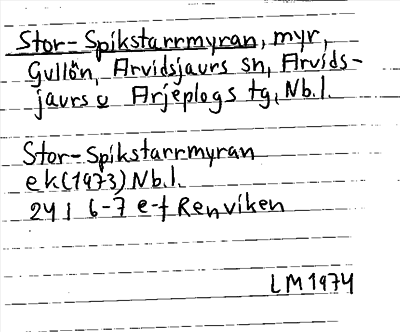 Stor-Spikstarrmyran, myr,
Gullön, Arvidsjaurs sn, Arvids-
jaurs o Arjeplogs tg, Nb.l.
Stor-Spikstarrmyran
ek (1973) Nb.l.
24 I 6-7 e-f Renviken
LM 1974